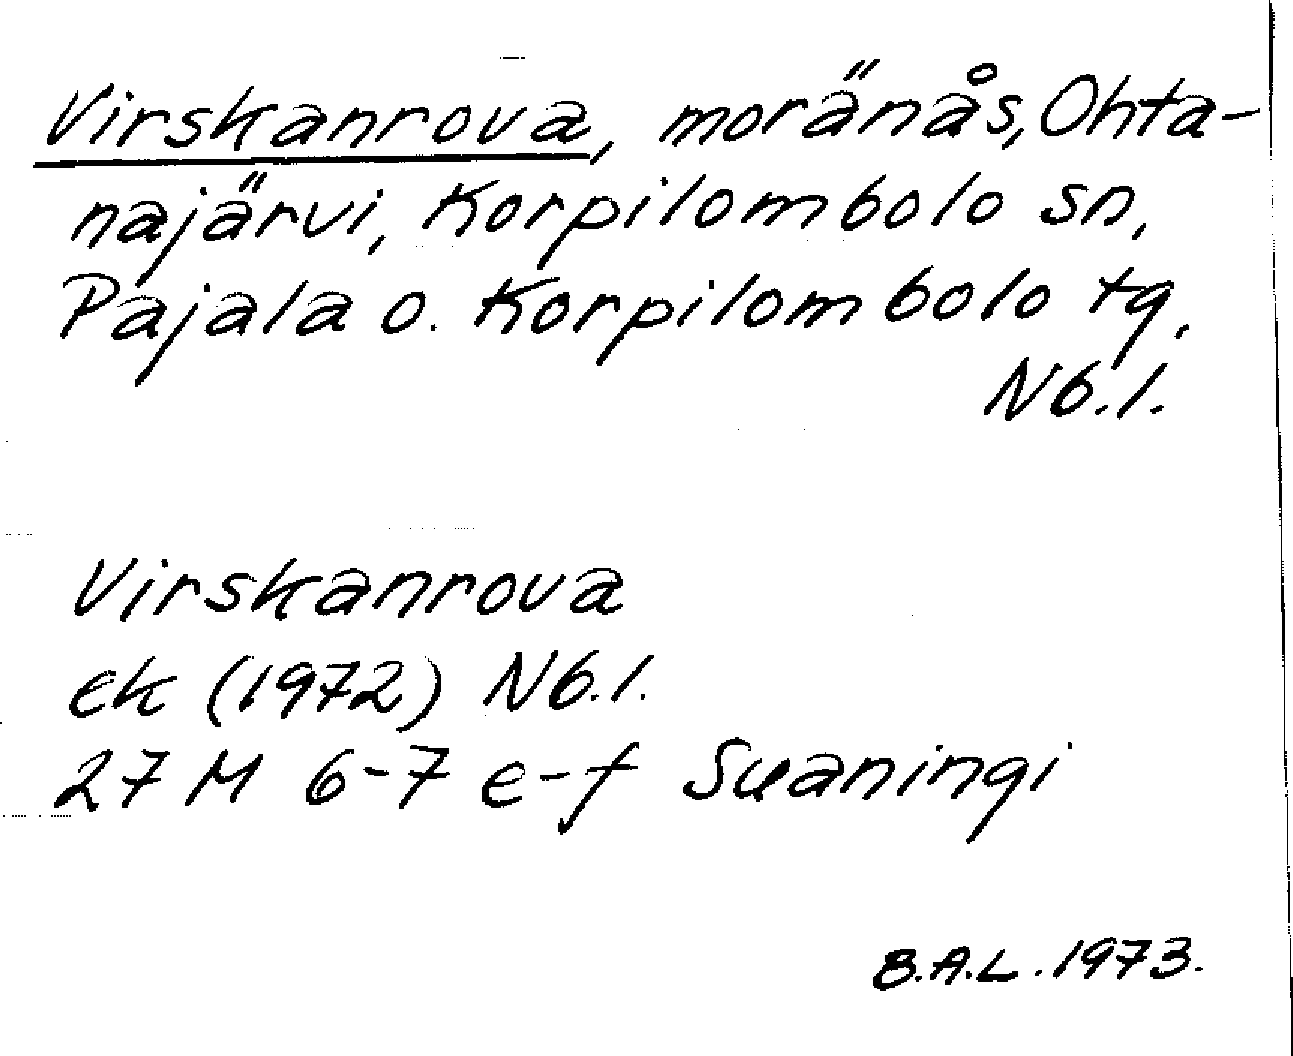 Virskanrova, moränås, Ohta-
najärvi, Korpilombolo sn,
Pajala o. Korpilombolo tg,
Nb.l.
Virskanrova
ek (1972) Nb.l.
27 M 6-7 e-f Suaningi
B.A.L. 1973.